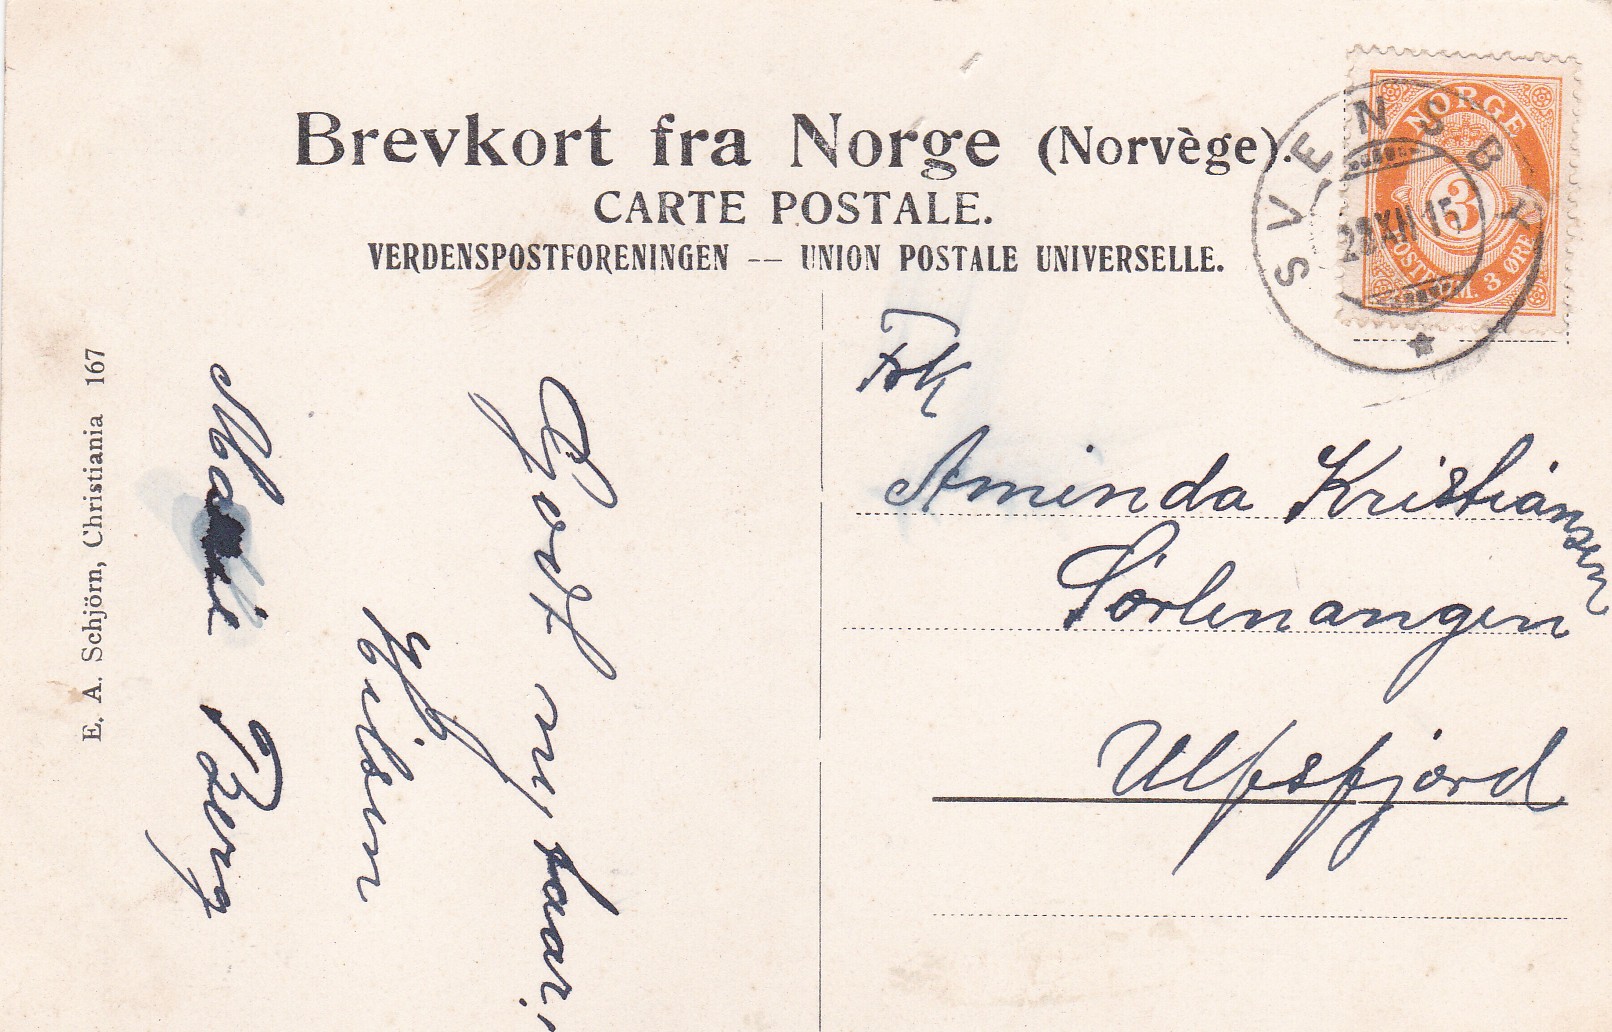 Brevkort fra Norge (Norvège).
CARTE POSTALE.
VERDENSPOSTFORENINGEN — UNION POSTALE UNIVERSELLE.
NORGE
3
POSTFRIM. 3 ØRE
SVENSBY
28 XII 15
Frk
Aminda Kristiansen
Sörlenangen
Ulfsfjord
Godt nyttaar!
Hilsen
Marie Berg
E. A. Schjörn, Christiania 167